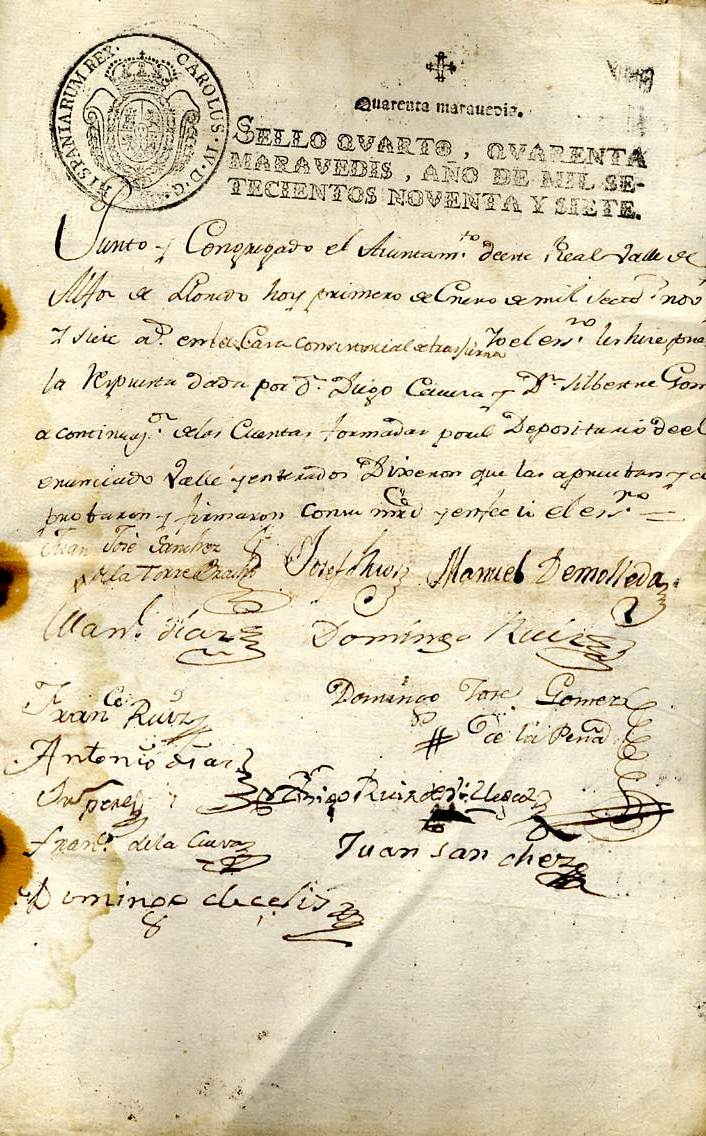 HISPANIARUM REX. CAROLUS·IV·D·G·
Quarenta maravedis.
SELLO QVARTO, QVARENTA
MARAVEDIS, AÑO DE MIL SE-
TECIENTOS NOVENTA Y SIETE.
Junto y Congregado el Aiuntam.to deeste Real Valle de
Alfoz de Lloredo hoy primero de Enero de mil setec.s nov
y siete a.s en la Casa Concexil el ess.no les hice pre
la respuesta dada por d.n Diego y D.n Silbestre Gom
a continuaz.on de las Cuentas formadas por el Depositario de el
enunciado Valle y enterados Dixeron que las aprueban y a
probaron y firmaron Con su mrd y enfee io el ess.no
Juan José Sanchez
de la Torre Joseph Ruiz Manuel Demolleda
Man.l diaz Domingo Ruiz
Fran.co Ruiz Domingo Jose Gomez
de la Peña
Antonio diaz
perez Ruiz de
fran.co de la Cueva Juan Sanchez
Domingo de celis